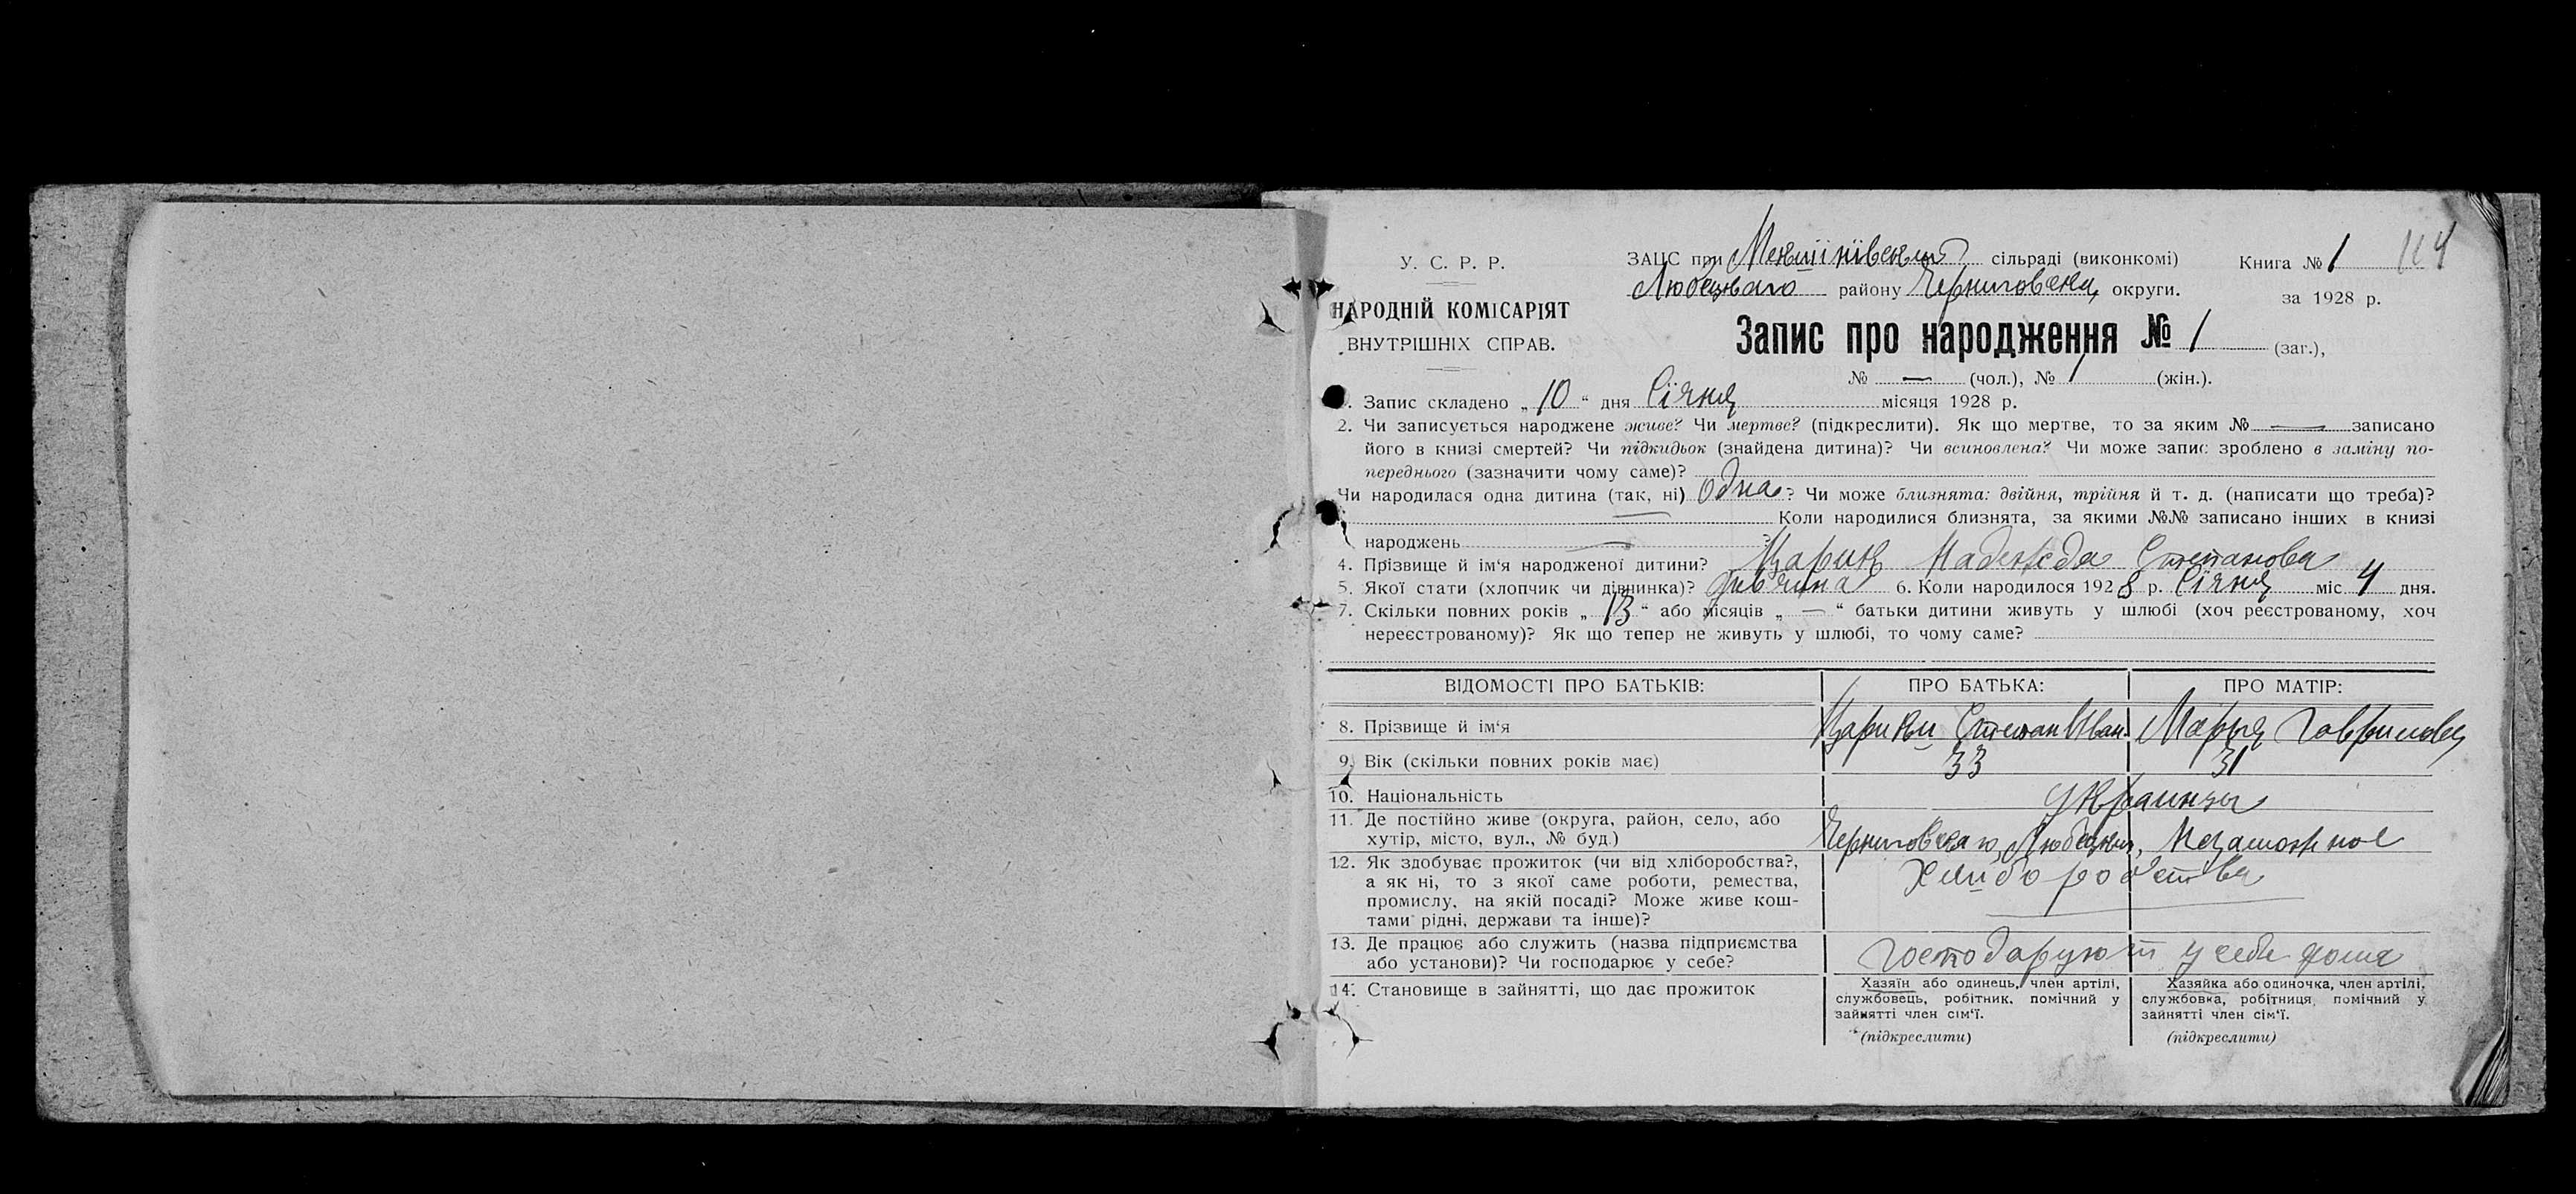 У. С. Р. Р.
НАРОДНІЙ КОМІСАРІЯТ
ВНУТРІШНІХ СПРАВ.
ЗАЦС при сільраді (виконкомі)
району округи.
Книга № 1 114
за 1928 р.
Запис про народження № 1 (заг.),
№ — (чол.), № 1 (жін.).
Запис складено „ 10 “ дня Січня місяця 1928 р.
2. Чи записується народжене живе? Чи мертве? (підкреслити). Як що мертве, то за яким № — записано
його в книзі смертей? Чи підкидьок (знайдена дитина)? Чи всиновлена? Чи може запис зроблено в заміну по-
переднього (зазначити чому саме)?
Чи народилася одна дитина (так, ні) Одна? Чи може близнята: двійня, трійня й т. д. (написати що треба)?
— Коли народилися близнята, за якими №№ записано інших в книзі
народжень — ?
4. Прізвище й ім‘я народженої дитини? Надежда Степанова
5. Якої стати (хлопчик чи дівчинка)? дивчина 6. Коли народилося 1928 р. Січня міс 4 дня.
7. Скільки повних років „ 13 “ або місяців „ — “ батьки дитини живуть у шлюбі (хоч реєстрованому, хоч
нереєстрованому)? Як що тепер не живуть у шлюбі, то чому саме?
ВІДОМОСТІ ПРО БАТЬКІВ: ПРО БАТЬКА: ПРО МАТІР:
8. Прізвище й ім‘я Степан Иван. Марья Гаврилова
9. Вік (скільки повних років має) 33 31
10. Національність украинцы
11. Де постійно живе (округа, район, село, або
хутір, місто, вул., № буд.)
12. Як здобуває прожиток (чи від хліборобства?,
а як ні, то з якої саме роботи, ремества,
промислу, на якій посаді? Може живе кош-
тами рідні, держави та інше)?
Хлиборобства
13. Де працює або служить (назва підприємства
або установи)? Чи господарює у себе?
господарують у себе дома
14. Становище в зайнятті, що дає прожиток
Хазяїн або одинець, член артілі,
службовець, робітник, помічний у
зайнятті член сім‘ї.
(підкреслити)
Хазяйка або одиночка, член артілі,
службовка, робітниця, помічний у
зайнятті член сім‘ї.
(підкреслити)